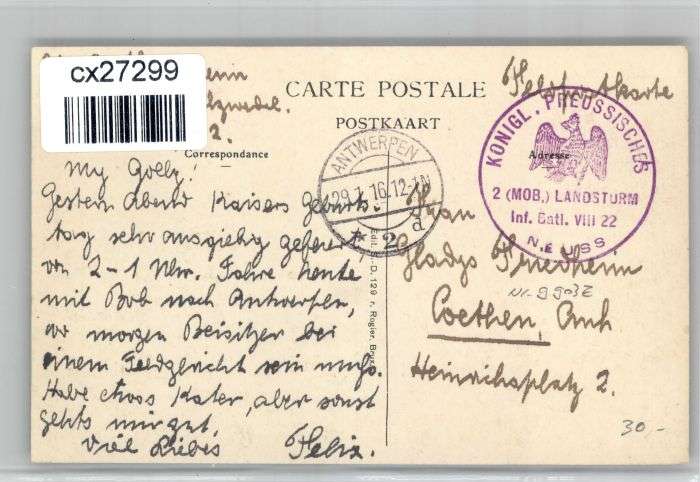 cx27299
CARTE POSTALE
POSTKAART
Correspondance
Adresse
Feldpostkarte
ANTWERPEN
29.1.16.12-1N
* 2 d
KÖNIGL. PREUSSISCHES
2 (MOB.) LANDSTURM
Inf. Batl. VIII 22
NEUSS
My Golly!
Gestern Abend Kaisers Geburts-
tag sehr ausgiebig gefeiert
von 2-1 Uhr. Fahre heute
mit Bob nach Antwerpen,
wo morgen Beisitzer bei
einem Feldgericht sein muss.
Habe etwas Kater, aber sonst
gehts mir gut.
Viel Liebes Felix.
Edit. S.-D. 129 r. Rogier, Brux.
Frau
Gladys Friedheim
Nr. 9903Z
Coethen, Anh
Heinrichsplatz 2.
30.-